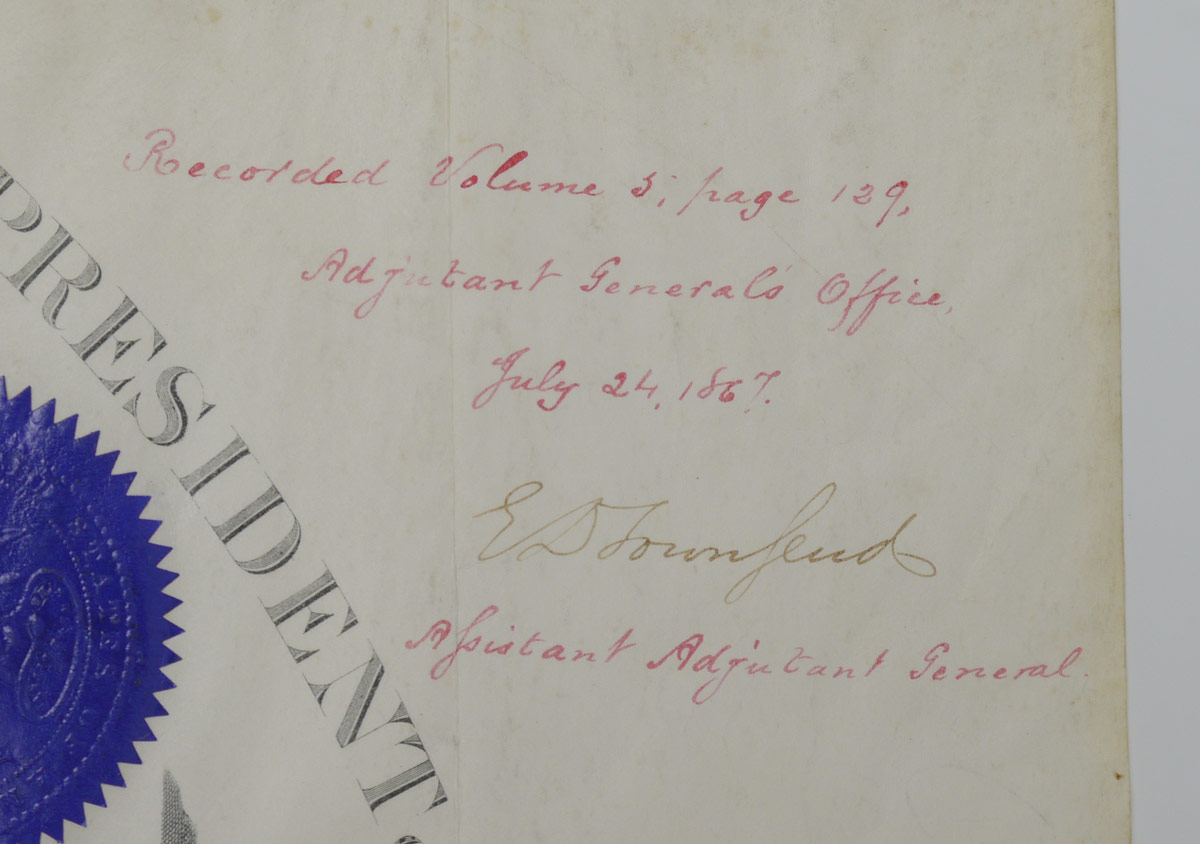 Recorded Volume 5, page 129,
Adjutant General's Office,
July 24, 1867.
E D Townsend
Assistant Adjutant General.
PRESIDENT